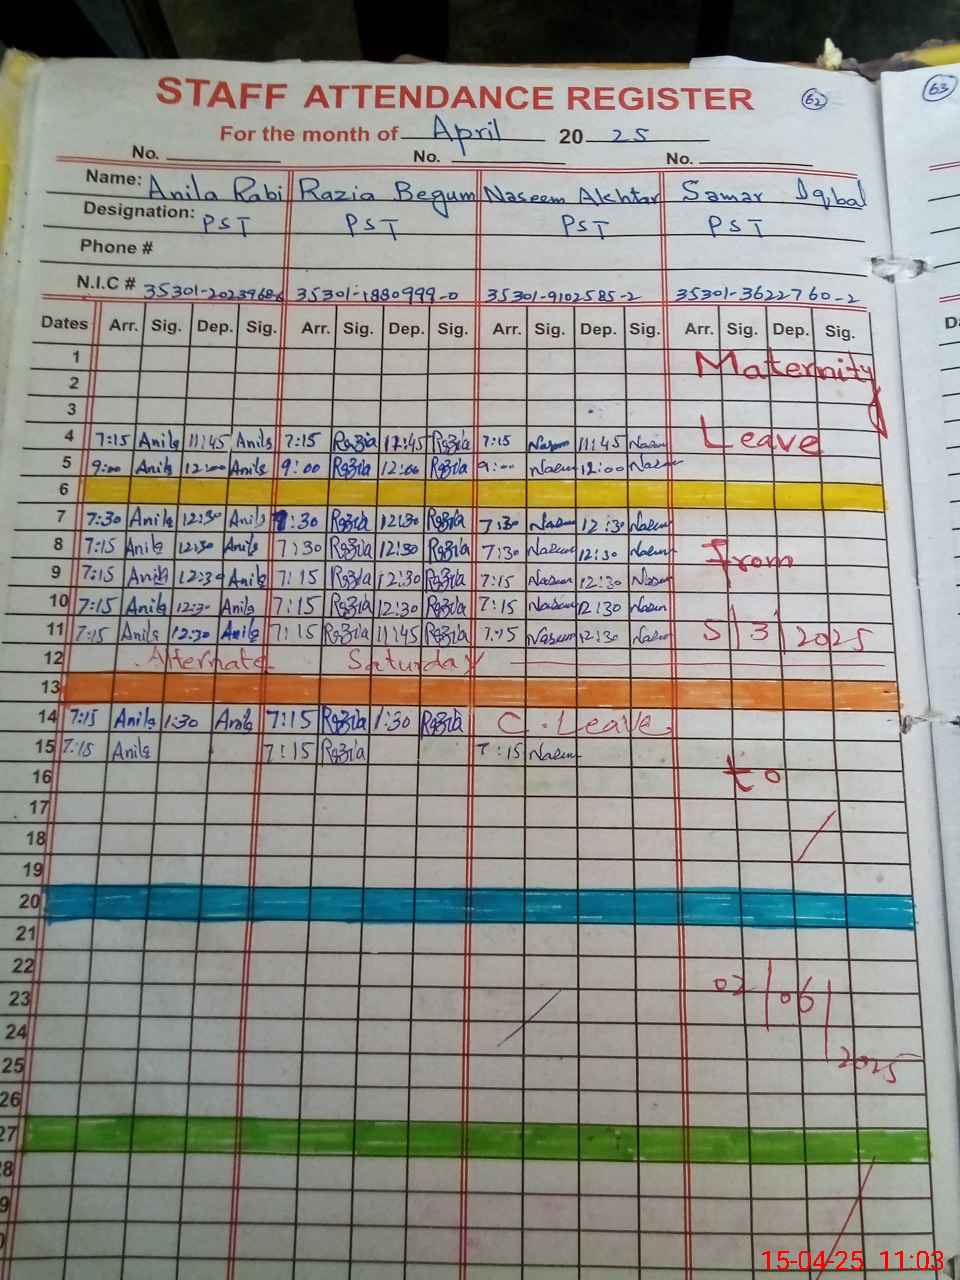 STAFF ATTENDANCE REGISTER 62 63
For the month of April 20 25
No. No. No.
Name: Anila Rabi Razia Begum Naseem Akhtar Samar Iqbal
Designation: PST PST PST PST
Phone #
N.I.C # 35301-1880999-0 35301-9102585-2 35301-3622760-2
Dates Arr. Sig. Dep. Sig. Arr. Sig. Dep. Sig. Arr. Sig. Dep. Sig. Arr. Sig. Dep. Sig.
1 Maternity
2
3
4 7:15 Anila 11:45 Anila 7:15 Razia 12:45 Razia 7:15 Naseem 11:45 Naseem Leave
5 9:00 Anila 12:00 Anila 9:00 Razia 12:00 Razia 9:00 Naseem 12:00 Naseem
6
7 7:30 Anila 12:30 Anila 7:30 Razia 12:30 Razia 7:30 Naseem 12:30 Naseem
8 7:15 Anila 12:30 Anila 7:30 Razia 12:30 Razia 7:30 Naseem 12:30 Naseem From
9 7:15 Anila 12:30 Anila 7:15 Razia 12:30 Razia 7:15 Naseem 12:30 Naseem
10 7:15 Anila 12:30 Anila 7:15 Razia 12:30 Razia 7:15 Naseem 12:30 Naseem
11 7:15 Anila 12:30 Anila 7:15 Razia 11:45 Razia 7:15 Naseem 12:30 Naseem 5/3/2025
12 Alternate Saturday
13
14 7:15 Anila 1:30 Anila 7:15 Razia 1:30 Razia C. Leave
15 7:15 Anila 7:15 Razia 7:15 Naseem
16 to
17
18
19
20
21
22
23 02/06/
24
25 2025
26
27
28
9
0
15-04-25 11:03